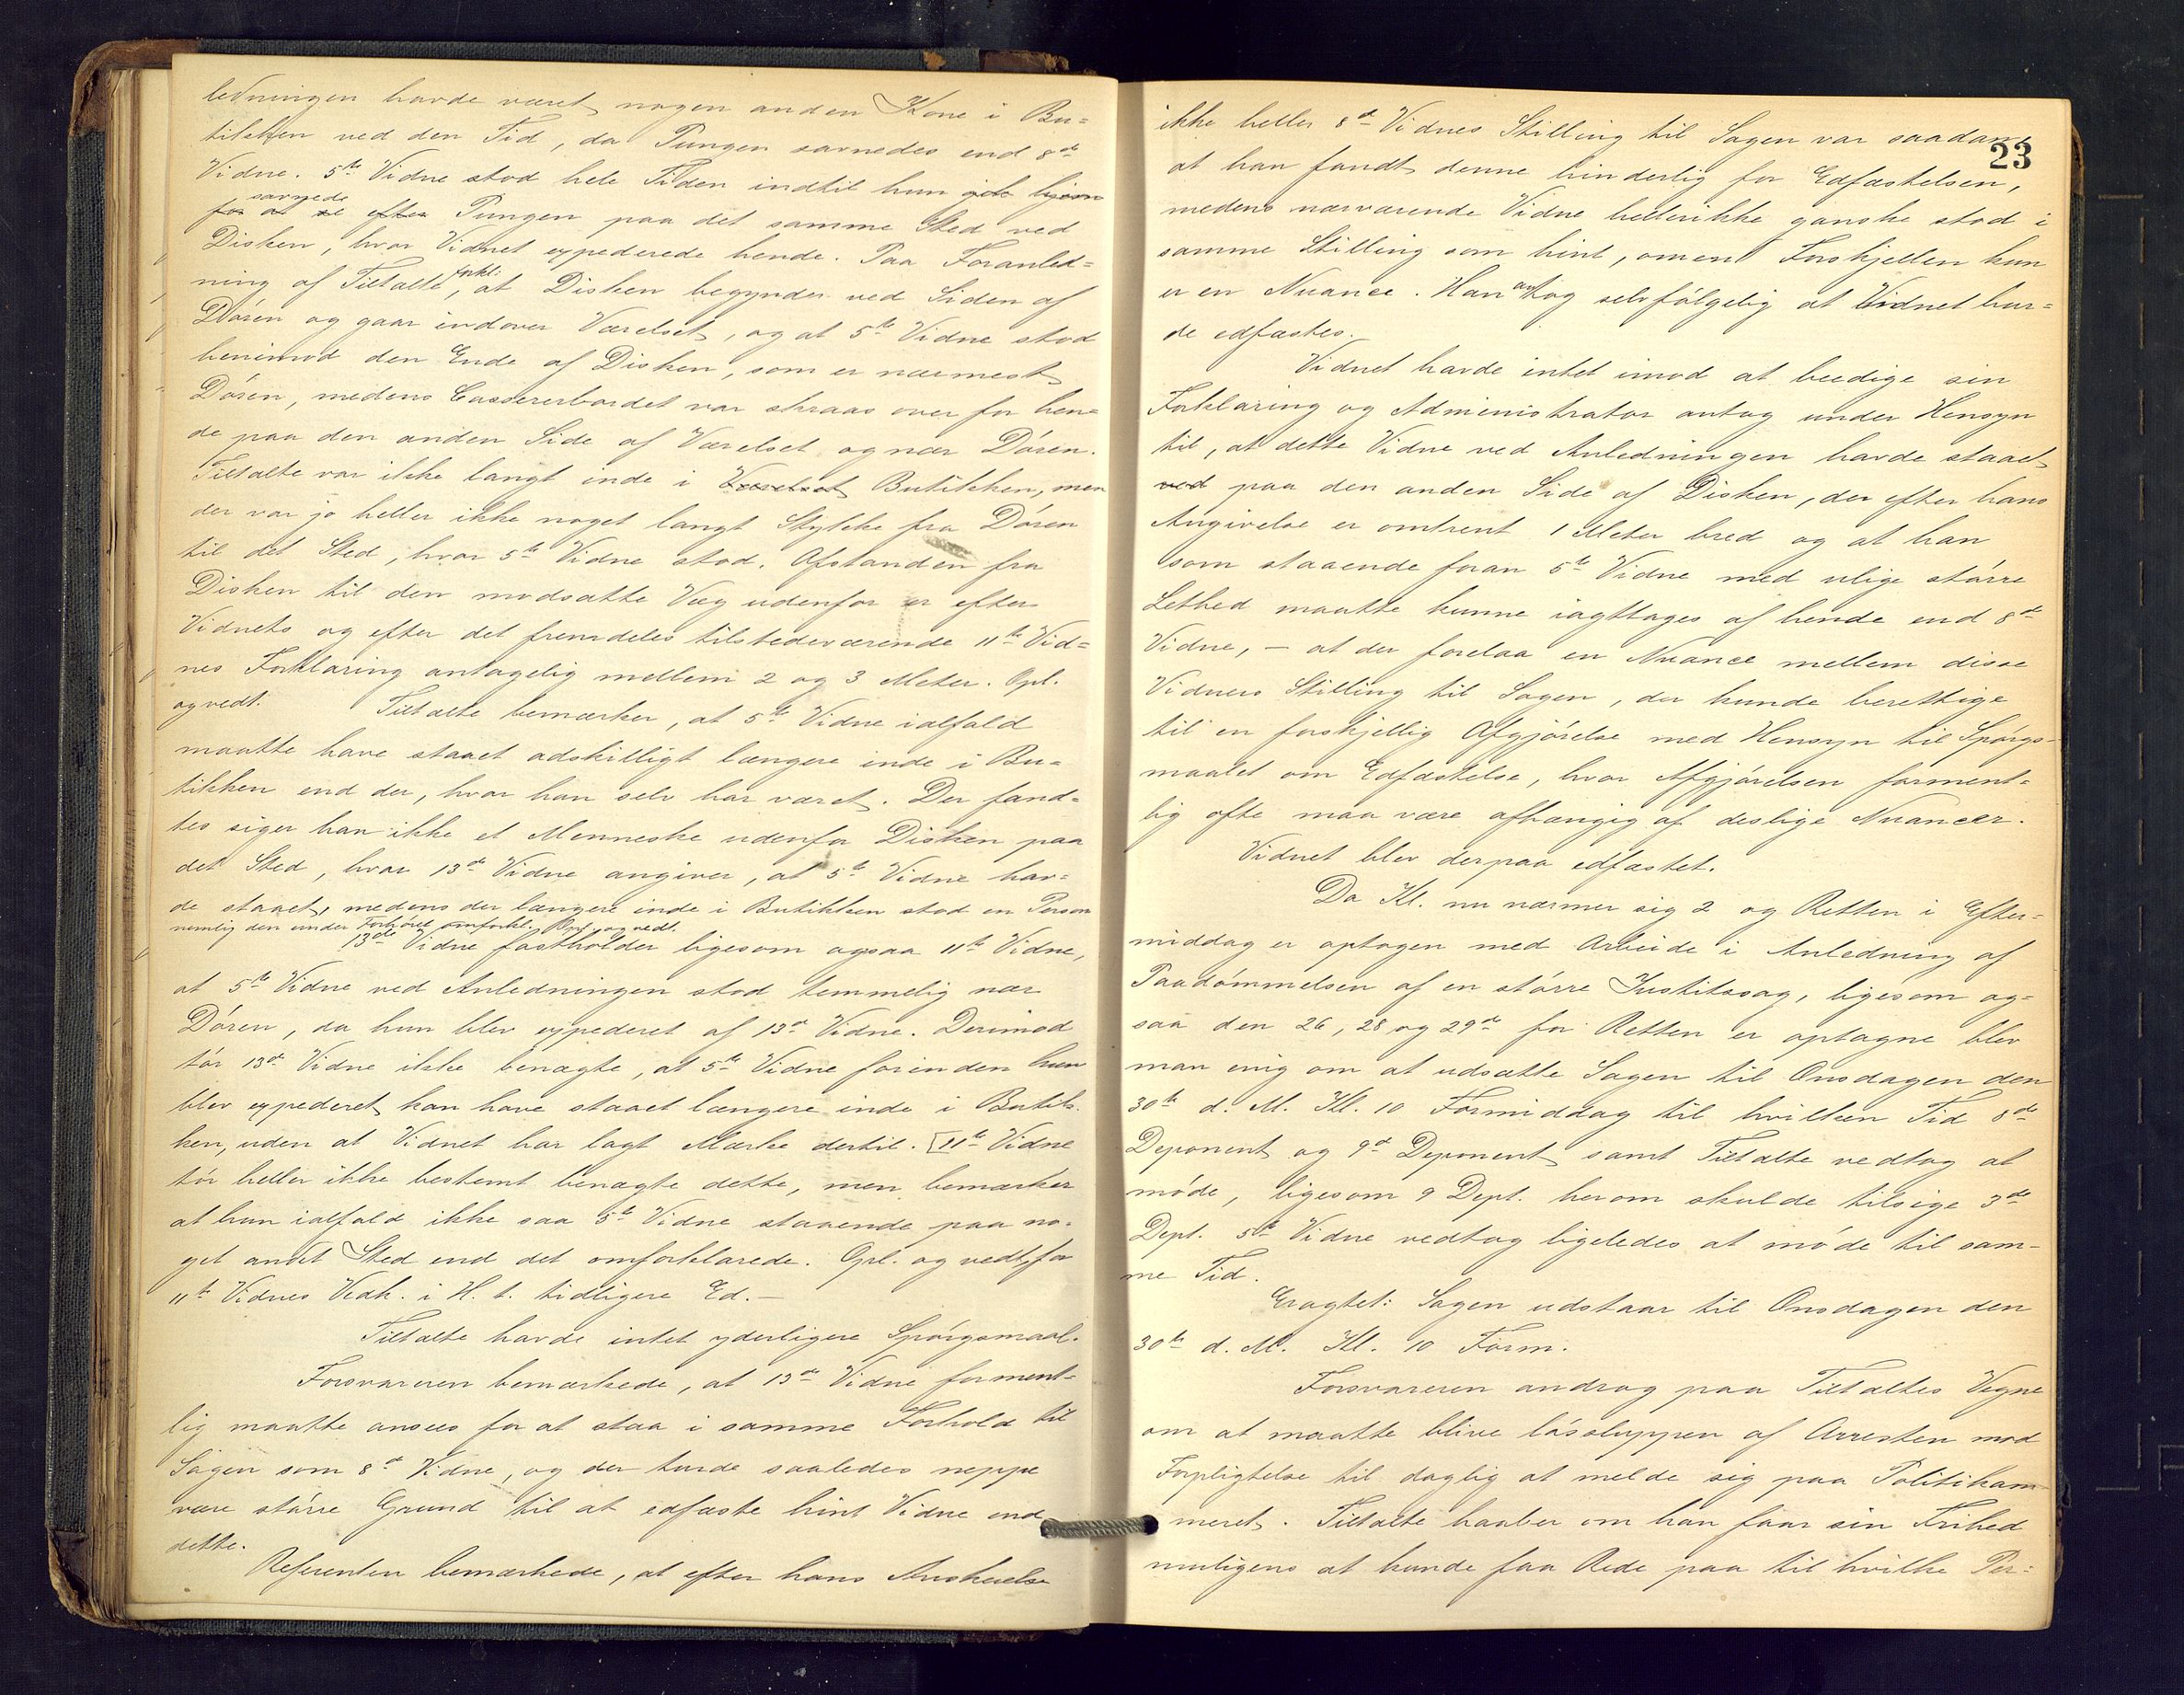 ledningen havde været nogen anden Kone i Bu=
tikken ved den Tid, da Pungen savnedes end 8de
Vidne. 5te Vidne stod hele Tiden indtil hun gik hjem
savnede
for at se efter Pungen paa det samme Sted ved
Disken, hvor Vidnet expederede hende. Paa Foranled=
ning af Tiltalte forkl:, at Disken begynder ved Siden af
Døren og gaar indover Værelset, og at 5te Vidne stod
henimod den Ende af Disken, som er nærmest
Døren, medens Cassererbordet var skraas over for hen=
de paa den anden Side af Værelset og nær Døren.
Tiltalte var ikke langt inde i Værelset Butikken, men
der var jo heller ikke noget langt Stykke fra Døren
til det Sted, hvor 5te Vidne stod. Afstanden fra
Disken til den modsatte Væg udenfor er efter
Vidnets og efter det fremdeles tilstedeværende 11te Vid=
nes Forklaring antagelig mellem 2 og 3 Meter. Opl.
og vedt.
Tiltalte bemærker, at 5te Vidne ialfald
maatte have staaet adskilligt længere inde i Bu=
tikken end der, hvor han selv har været. Der fand=
tes siger han ikke et Menneske udenfor Disken paa
det Sted, hvor 13de Vidne angiver, at 5te Vidne hav=
de staaet, medens der længere inde i Butikken stod en Person
nemlig den under Forhøret omforkl. Opl. og vedt.
13de Vidne fastholder ligesom ogsaa 11te Vidne,
at 5te Vidne ved Anledningen stod temmelig nær
Døren, da hun blev expederet af 13de Vidne. Derimod
tør 13de Vidne ikke benægte, at 5te Vidne forinden hun
blev expederet kan have staaet længere inde i Butik=
ken, uden at Vidnet har lagt Mærke dertil. [11te Vidne
tør heller ikke bestemt benægte dette, men bemærker
at hun ialfald ikke saa 5te Vidne staaende paa no=
get andet Sted end det omforklarede. Opl. og vedt. for
11te Vidnes Vedk. i H. t. tidligere Ed.—
Tiltalte havde intet yderligere Spørgsmaal.
Forsvareren bemærkede, at 13de Vidne forment=
lig maatte ansees for at staa i samme Forhold til
Sagen som 8de Vidne, og der turde saaledes neppe
være større Grund til at edfæste hint Vidne end
dette.
Referenten bemærkede, at efter hans Anskuelse
23
ikke heller 8de Vidnes Stilling til Sagen var saadan,
at han fandt denne hinderlig for Edfæstelsen,
medens nærværende Vidne heller ikke ganske stod i
samme Stilling som hint, omend Forskjellen kun
er en Nuance. Han antog selvfølgelig at Vidnet bur=
de edfæstes.
Vidnet havde intet imod at beedige sin
Forklaring og Administrator antog under Hensyn
til, at dette Vidne ved Anledningen havde staaet
ved paa den anden Side af Disken, der efter hans
Angivelse er omtrent 1 Meter bred og at han
som staaende foran 5te Vidne med ulige større
Lethed maatte kunne iagttages af hende end 8de
Vidne, — at der forelaa en Nuance mellem disse
Vidners Stilling til Sagen, der kunde berettige
til en forskjellig Afgjørelse med Hensyn til Spørgs=
maalet om Edfæstelse, hvor Afgjørelsen forment=
lig ofte maa være afhængig af deslige Nuancer.
Vidnet blev derpaa edfæstet.
Da Kl. nu nærmer sig 2 og Retten i Efter=
middag er optagen med Arbeide i Anledning af
Paadømmelsen af en større Justitssag, ligesom og=
saa den 26, 28 og 29de for Retten er optagne blev
man enig om at udsætte Sagen til Onsdagen den
30te d. M. Kl. 10 Formiddag til hvilken Tid 8de
Deponent og 9de Deponent samt Tiltalte vedtog at
møde, ligesom 9 Dept. herom skulde tilsige 3de
Dept. 5te Vidne vedtog ligeledes at møde til sam=
me Tid.
Eragtet: Sagen udstaar til Onsdagen den
30te d. M. Kl. 10 Form.
Forsvareren androg paa Tiltaltes Vegne
om at maatte blive løssluppen af Arresten mod
Forpligtelse til daglig at melde sig paa Politikam=
meret. Tiltalte haaber om han faar sin Frihed
muligens at kunde faa Rede paa til hvilke Per=